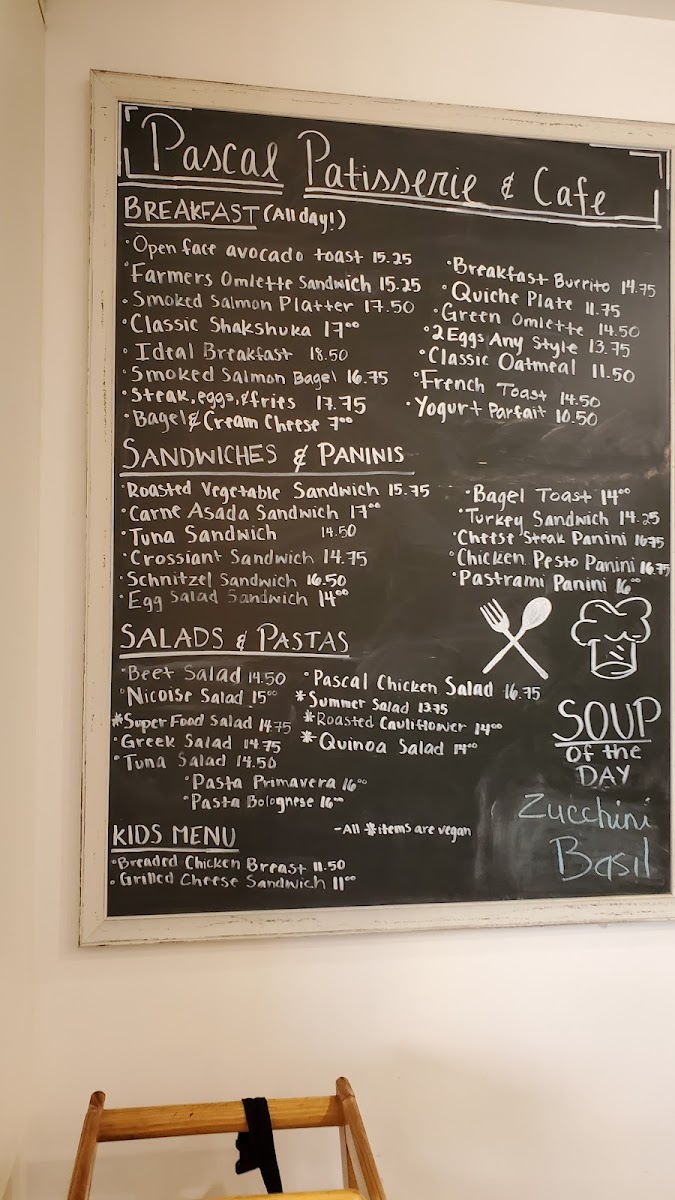 Pascal Patisserie & Cafe
BREAKFAST (All day!)
·Open face avocado toast 15.25
·Farmers Omlette Sandwich 15.25
·Smoked Salmon Platter 17.50
·Classic Shakshuka 17⁰⁰
·Ideal Breakfast 18.50
·Smoked Salmon Bagel 16.75
·Steak, eggs, & fries 17.75
·Bagel & Cream Cheese 7⁰⁰
·Breakfast Burrito 14.75
·Quiche Plate 11.75
·Green Omlette 14.50
·2 Eggs Any Style 13.75
·Classic Oatmeal 11.50
·French Toast 14.50
·Yogurt Parfait 10.50
SANDWICHES & PANINIS
·Roasted Vegetable Sandwich 15.75
·Carne Asada Sandwich 17⁰⁰
·Tuna Sandwich 14.50
·Crossiant Sandwich 14.75
·Schnitzel Sandwich 16.50
·Egg Salad Sandwich 14⁰⁰
·Bagel Toast 14⁰⁰
·Turkey Sandwich 14.25
·Cheese Steak Panini 16.75
·Chicken Pesto Panini 16.75
·Pastrami Panini 16⁰⁰
SALADS & PASTAS
·Beet Salad 14.50
·Nicoise Salad 15⁰⁰
*Super Food Salad 14.75
·Greek Salad 14.75
·Tuna Salad 14.50
·Pascal Chicken Salad 16.75
*Summer Salad 13.75
*Roasted Cauliflower 14⁰⁰
*Quinoa Salad 14⁰⁰
·Pasta Primavera 16⁰⁰
·Pasta Bolognese 16⁰⁰
-All *items are vegan
KIDS MENU
·Breaded Chicken Breast 11.50
·Grilled Cheese Sandwich 11⁰⁰
SOUP
Of the
DAY
Zucchini
Basil